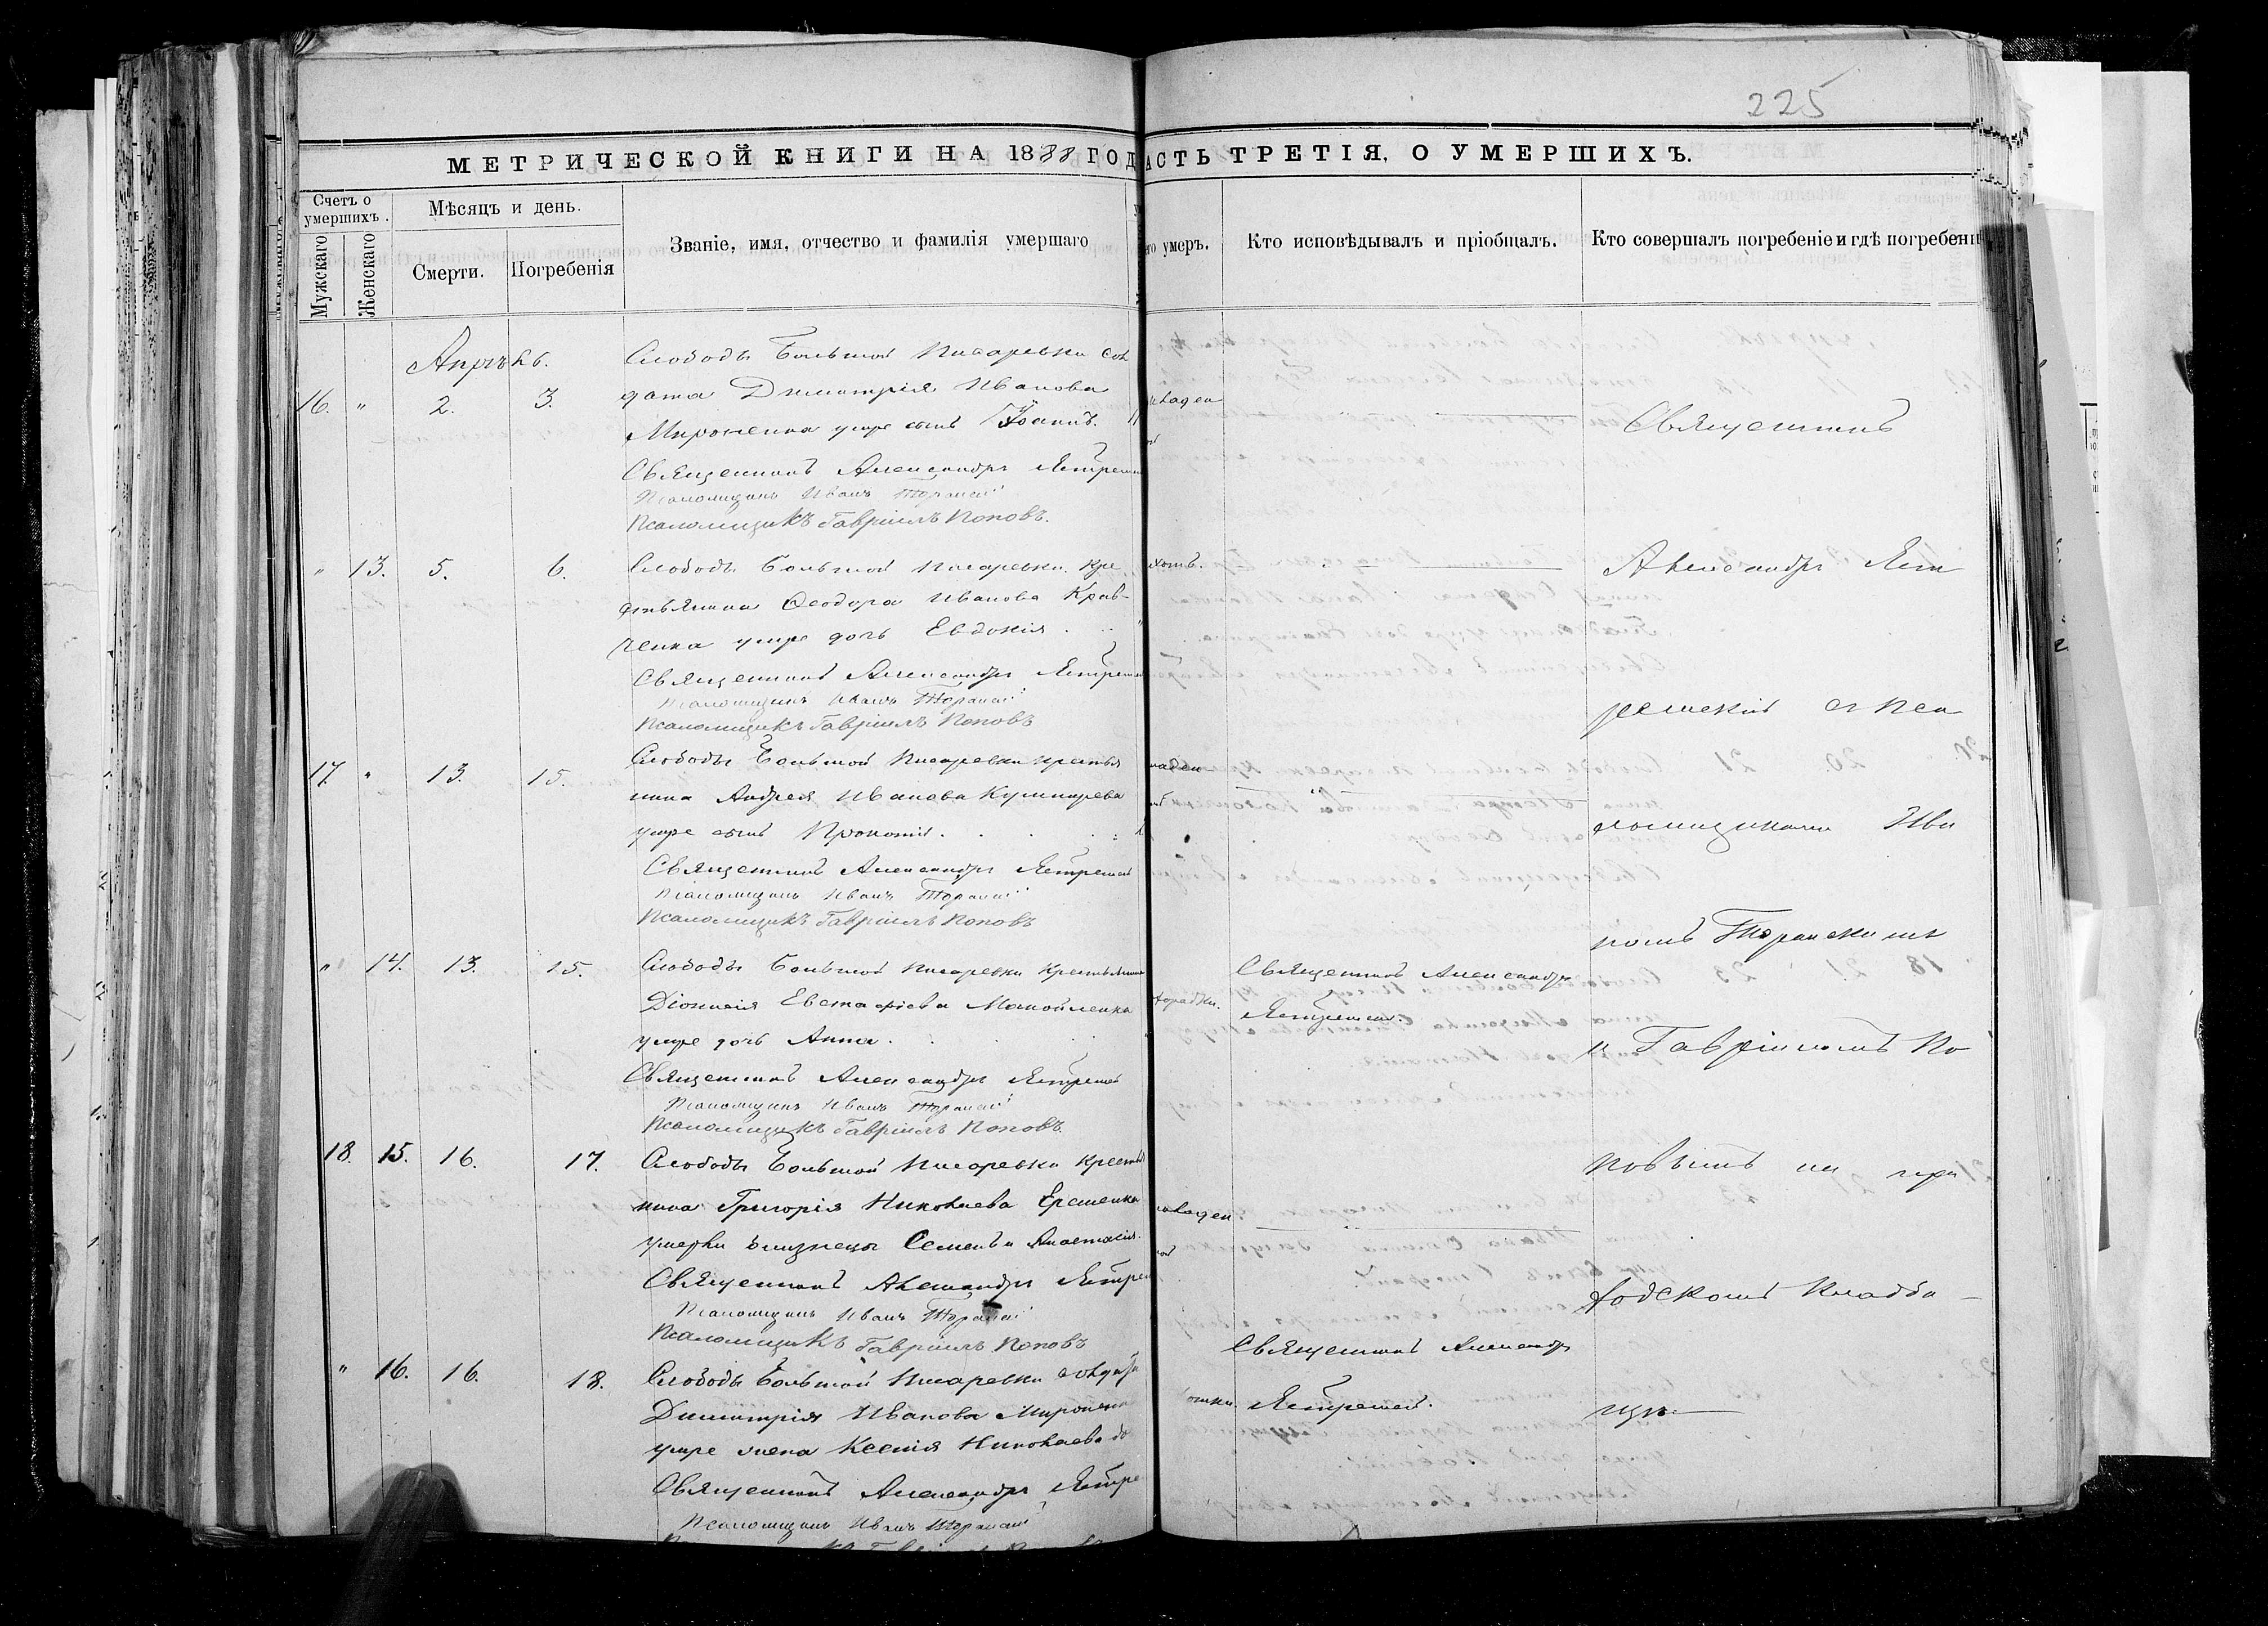 225
МЕТРИЧЕСКОЙ КНИГИ НА 1888 ГОД
АСТЬ ТРЕТІЯ, О УМЕРШИХЪ.
Счетъ о умершихъ.
Мужскаго
Женскаго
Мѣсяцъ и день.
Смерти.
Погребенія
Званіе, имя, отчество и фамилія умершаго
то умеръ.
Кто исповѣдывалъ и пріобщалъ.
Кто совершалъ погребеніе и гдѣ погребены
Апрѣль.
16. " 2. 3.
Слободы Большой Писаревки сол
дата Димитрія Иванова
Мироненка умре сынъ Іоаннъ.
Священникъ Александръ Ястремск
Псаломщикъ Иванъ Торанскій
Псаломщикъ Гавріилъ Поповъ.
" 13. 5. 6.
Слободы Большой Писаревки Кре
стьянина Ѳеодора Иванова Крав-
ченка умре дочь Евдокія.
Священникъ Александръ Ястремск
Псаломщикъ Иванъ Торанскій
Псаломщикъ Гавріилъ Поповъ
17. " 13. 15.
Слободы Большой Писаревки крестья
нина Андрея Иванова
умре сынъ Прокопій.
Священникъ Александръ Ястремскій
Псаломщикъ Иванъ Торанскій
Псаломщикъ Гавріилъ Поповъ
" 14. 13. 15.
Слободы Большой Писаревки крестьянина
Діонисія Евстафіева Манойленка
умре дочь Анна.
Священникъ Александръ Ястремск
Псаломщикъ Иванъ Торанскій
Псаломщикъ Гавріилъ Поповъ.
18. 15. 16. 17.
Слободы Большой Писаревки крестья
нина Григорія Николаева Еременка
умерли близнецы Семенъ и Анастасія.
Священникъ Александръ Ястрем
Псаломщикъ Иванъ Торанскій
Псаломщикъ Гавріилъ Поповъ
" 16. 16. 18.
Слободы Большой Писаревки солдата
Димитрія Иванова Мироненка
умре жена Ксенія Николаева
Священникъ Александръ Ястре
Псаломщикъ Иванъ Торанскій
Священникъ Александръ
Ястремскій.
Священникъ Александръ
Ястремскій.
Священникъ
Александръ Яст
ремскій съ Пса
ломщиками Ива
номъ Торанскимъ
и Гавріиломъ По
повымъ на при
ходскомъ кладби-
щѣ.